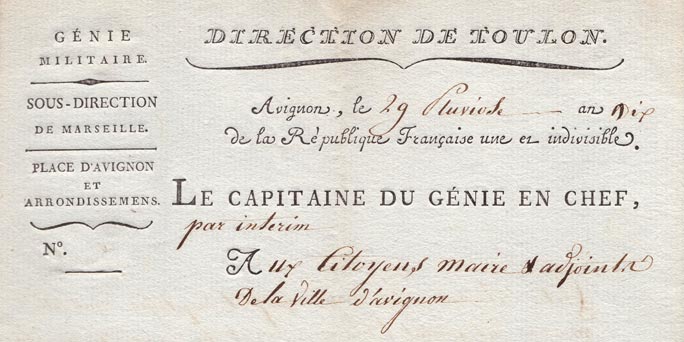 GÉNIE
MILITAIRE.
SOUS-DIRECTION
DE MARSEILLE.
PLACE D'AVIGNON
ET
ARRONDISSEMENS.
N°.
DIRECTION DE TOULON.
Avignon, le 29 Pluviose an Dix
de la République Française une et indivisible.
LE CAPITAINE DU GÉNIE EN CHEF,
par interim
Aux Citoyens maire & adjoints
De la Ville d'avignon